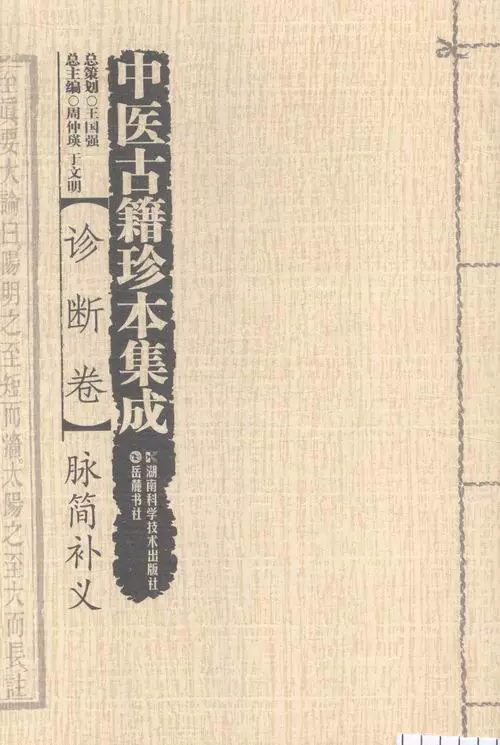 中医古籍珍本集成
湖南科学技术出版社
岳麓书社
总策划○王国强
总主编○周仲瑛 于文明
【诊断卷】
脉简补义
至真要大論曰陽明之至短而濇太陽之至大而長註